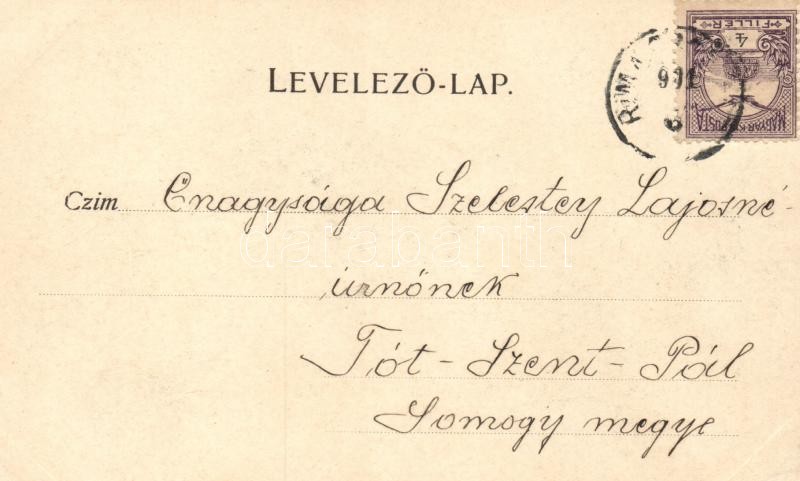 LEVELEZÖ-LAP.
4
FILLÉR
MAGYAR KIR. POSTA
Czim Őnagysága Szelestey Lajosné-
úrnőnek
Tót-Szent-Pál
Somogy megye
darabanth